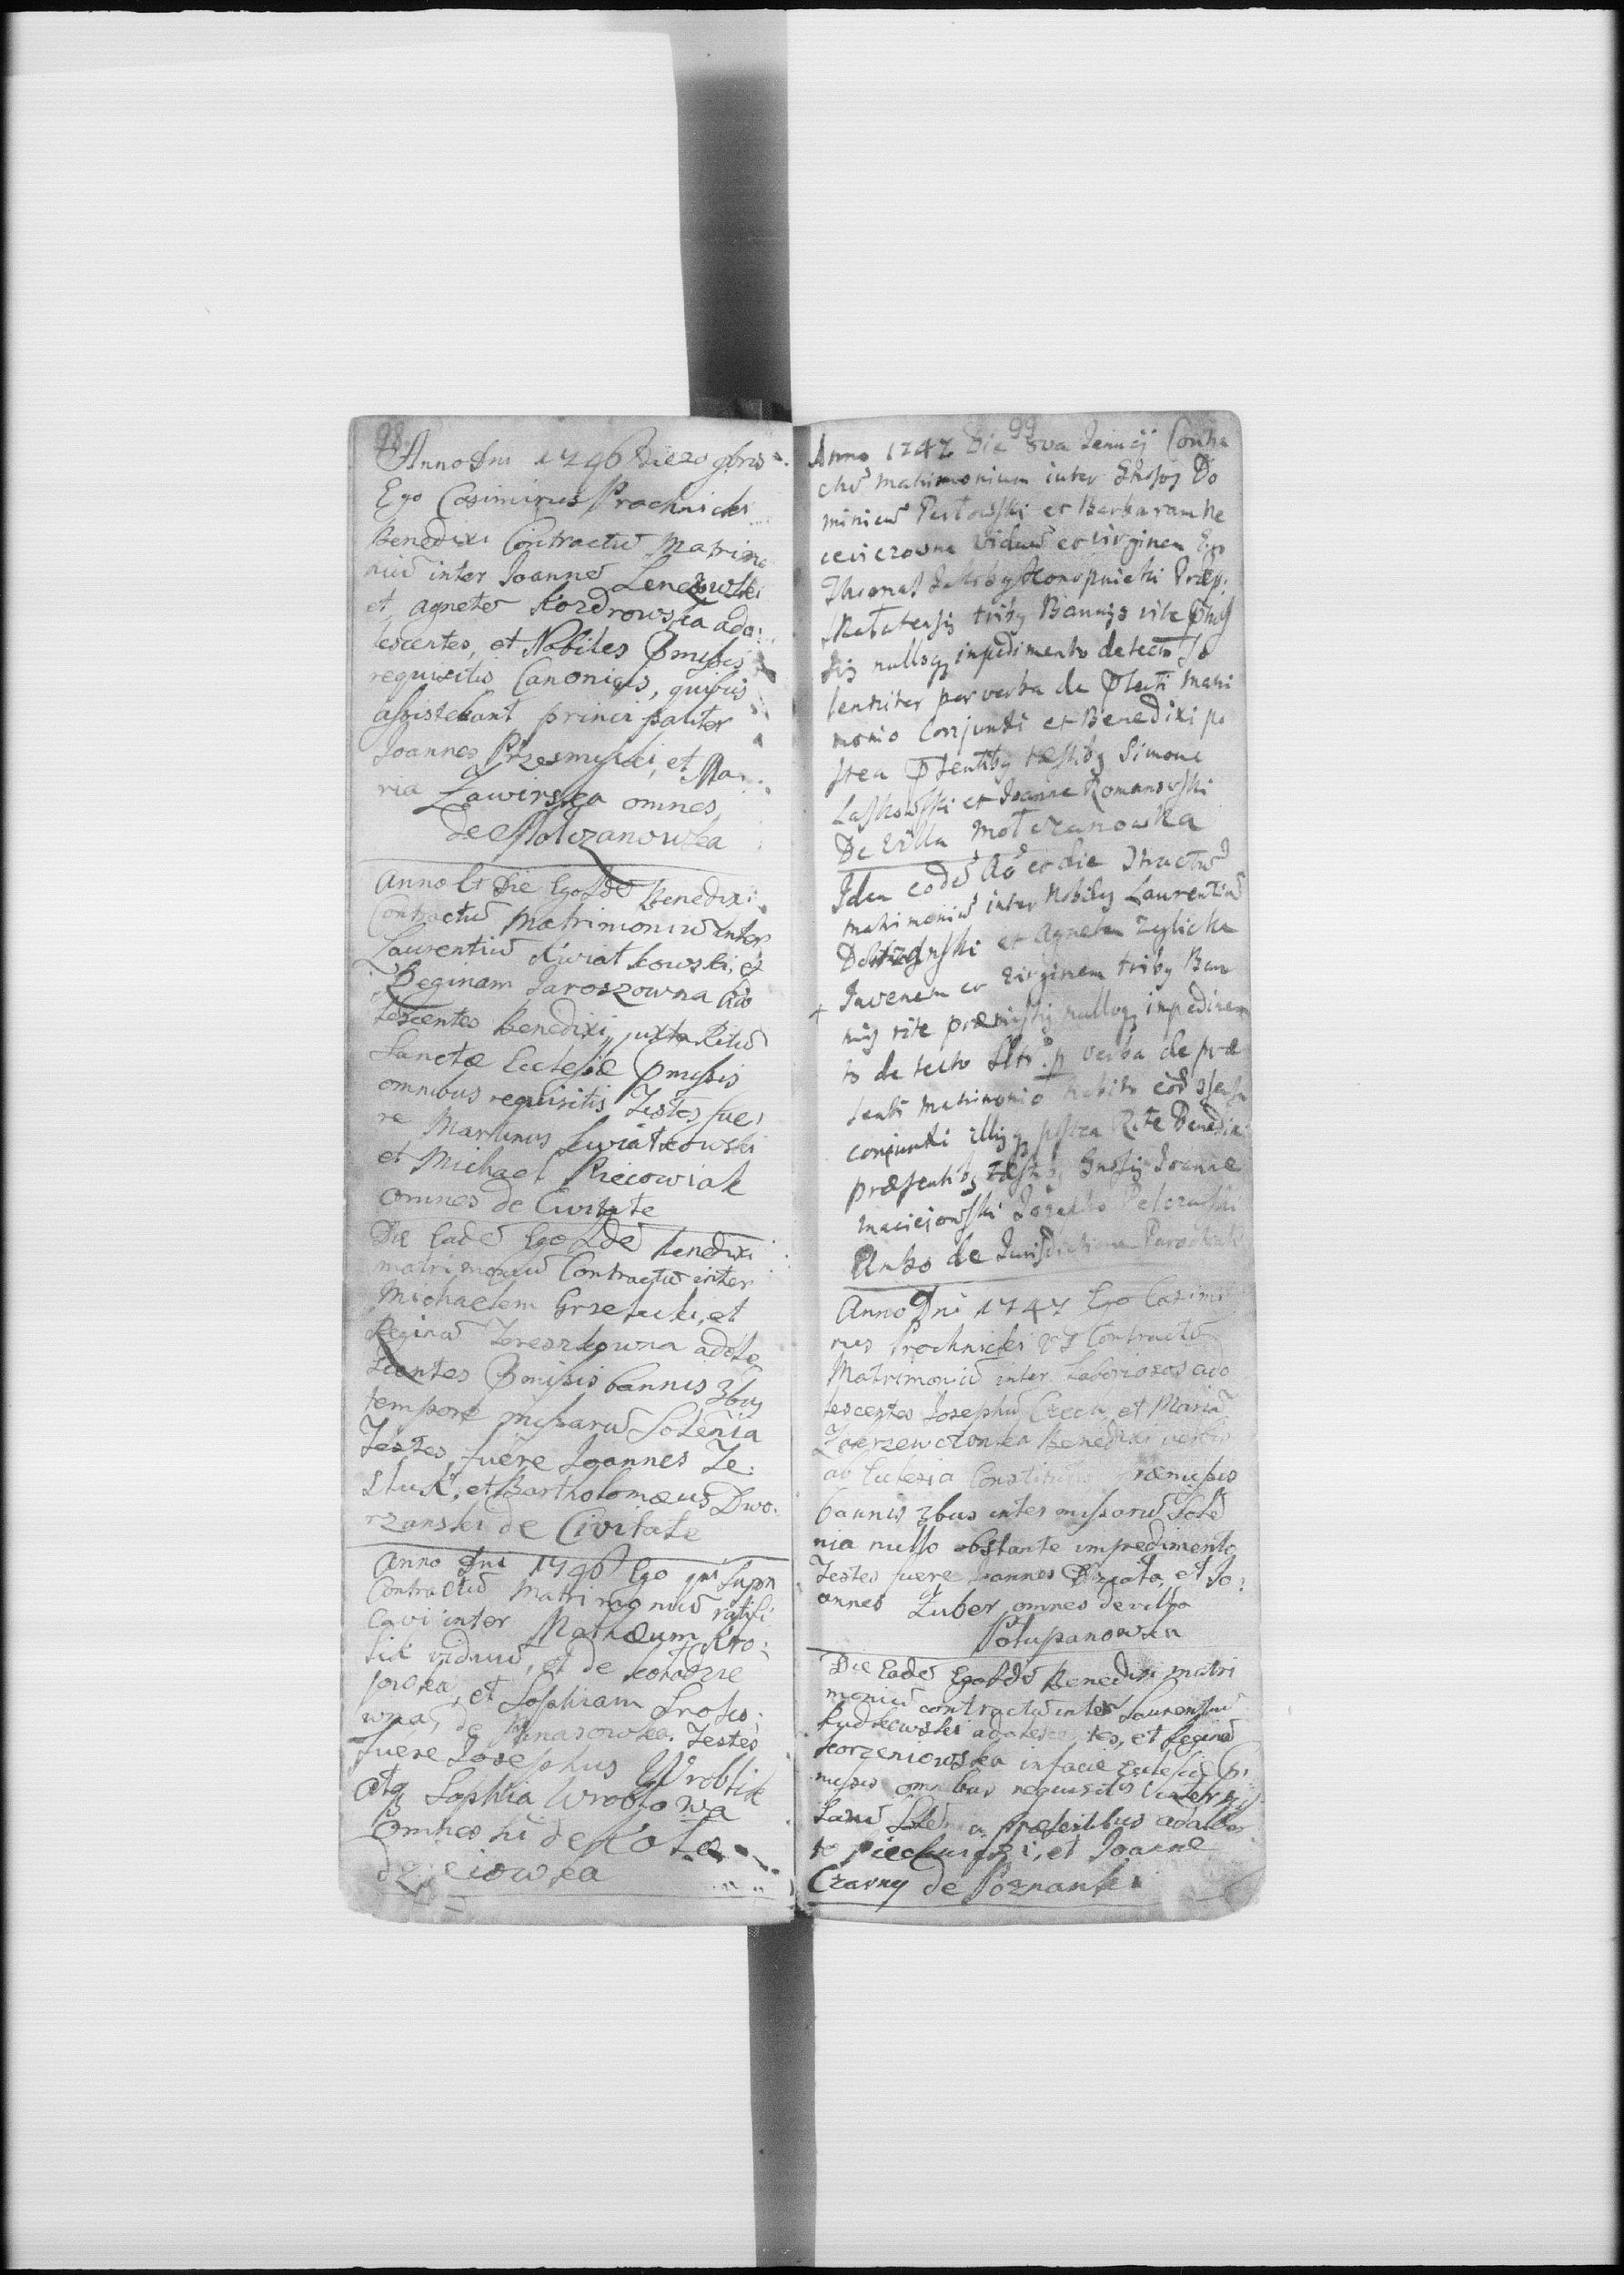 98.
Anno Dni 1746 Die 20 9bris
Ego Casimirus Prochnicki
Benedixi Contractu Matrimo
niu inter Joanne Lenczowski
et Agnete Kozdrowska ado:
lescentes, et Nobiles Pmissis
requisitis Canonicis, quibus
assistebant principaliter
Joannes Przesmycki, et Ma:
ria Zawirska omnes
de Molczanowka
Anno et Die Ego Idē Benedixi
Contractu Matrimoniu inter
Laurentiu Kwiatkowski, et
Reginam Jaroszowna Ado
lescentes Benedixi juxta Ritū
Sanctæ Ecclesiæ Pmissis
omnibus requisitis Testes fue:
re Martinus Kwiatkowski
et Michael Riecowiak
omnes de Civitate
Die Eadē Ego Idē benedixi
matrimoniu Contractu inter
Michaelem Grzelucki, et
Regina Tereszkowna adole
scentes Pmissis bannis 3bus
tempore missaru Solenia
Testes fuere Joannes Ze:
stuk, et Bartholomæus Dwo:
rzanski de Civitate
Anno Dni 1746 Ego qui Supra
Contractu Matrimoniu ratifi
cavi inter Mathæum Kro:
lik viduu, et de
et Sophiam
de Testes
fuere Josephus Wroblik
atq Sophia Wroblowa
Omnes hi de Kolo
dzieiowka
99
Anno 1747 Die 8va Januarij Contra
ctū Matrimonium inter Gnosos Do
minicū Perlowski et Barbaram Ne
cewiczowna Viduū et virginem Ego
Thomas Jakoby Konopnicki Præp:
Skalatensis tribg Bannis rite Pmis
sis nulloq impedimento detecto So
lenniter per verba de Psenti Matri
monio Conjunxi et Benedixi po
stea Psentibg testibg Simone
Laskowski et Joanne Romanowski
De Villa Molczanowka
Idem eodē Aō et die Ctractū
matrimoniū inter Nobiles Laurentiū
Dobrzynski et Agnetem Zylicka
+ Juvenem et virginem tribg Ban
nis rite præmissis nulloq impedimen
to detecto Sltr. p verba de præ
senti Matrimonio habito eor csensu
conjunxi illisq postea Rite Benedixi
præsentibg testibg Gnosis Joanne
Maciejowski Josepho Pelczarski
Ambo de Jurisdictione Parochiali
Anno Dni 1747 Ego Casimi
rus Prochnicki Contractū
Matrimoniū inter Laboriosos ado
lescentes Josephū Czech et Mariā
Benedixi verbis
ab Ecclesia Constitutis præmissis
bannis 3bus inter missarū Solē
nia nullo obstante impedimento
Testes fuere Joannes et Jo:
annes Zuber omnes de villa
Polupanowka
Die Eadē Ego Idē Benedixi matri
moniū contractū inter Laurentiū
Rudkowski adolescentes, et Reginā
Korzeniowska in facie Ecclesiæ P
missis omnibus requisitis inter mis
sarū Solēnia præsentibus Adalber
to Piechnicki, et Joanne
Czarny de Poznanki